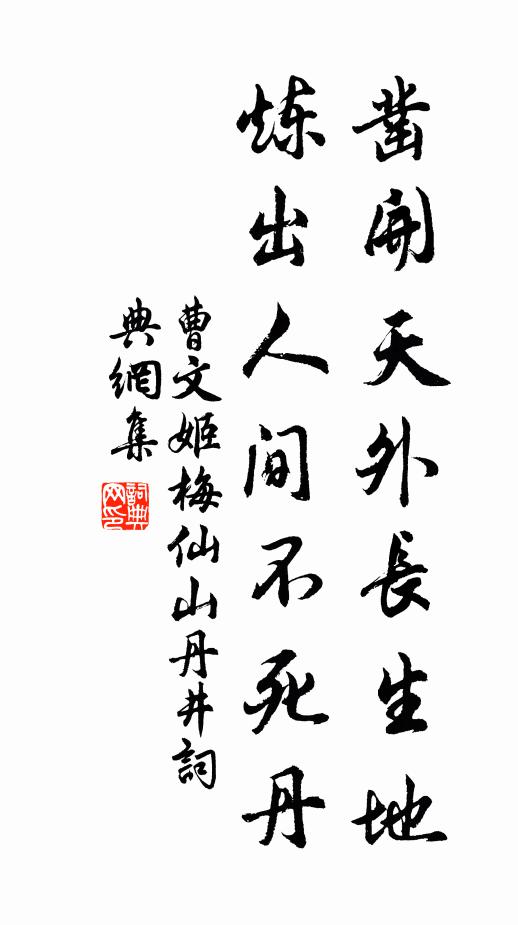 凿開天外長生地
炼出人间不死丹
曹文姬梅仙山丹井詞
典網集
詞典网印